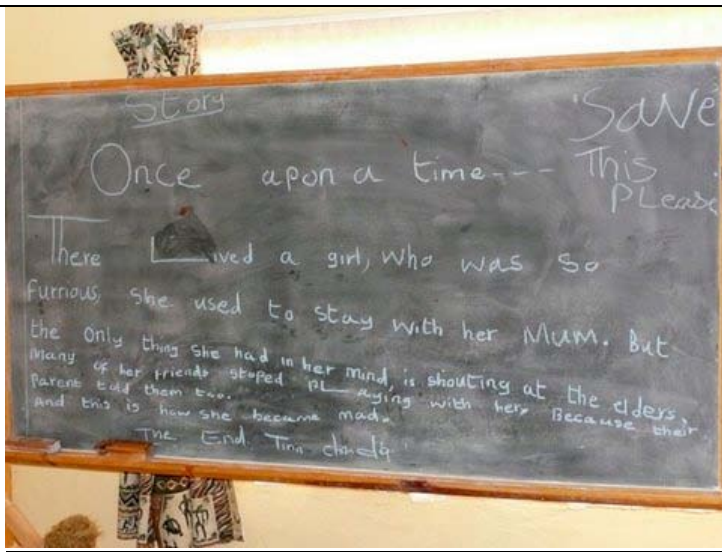 Story
'Save
This
PLease
Once apon a time---
There Lived a girl, who was so
furrious, She used to stay with her Mum. But
the only thing She had in her mind, is shouting at the elders.
Many of her friends stoped PLaying with her, Because their
Parent told them too.
And this is how she became mad.
The End. Tina